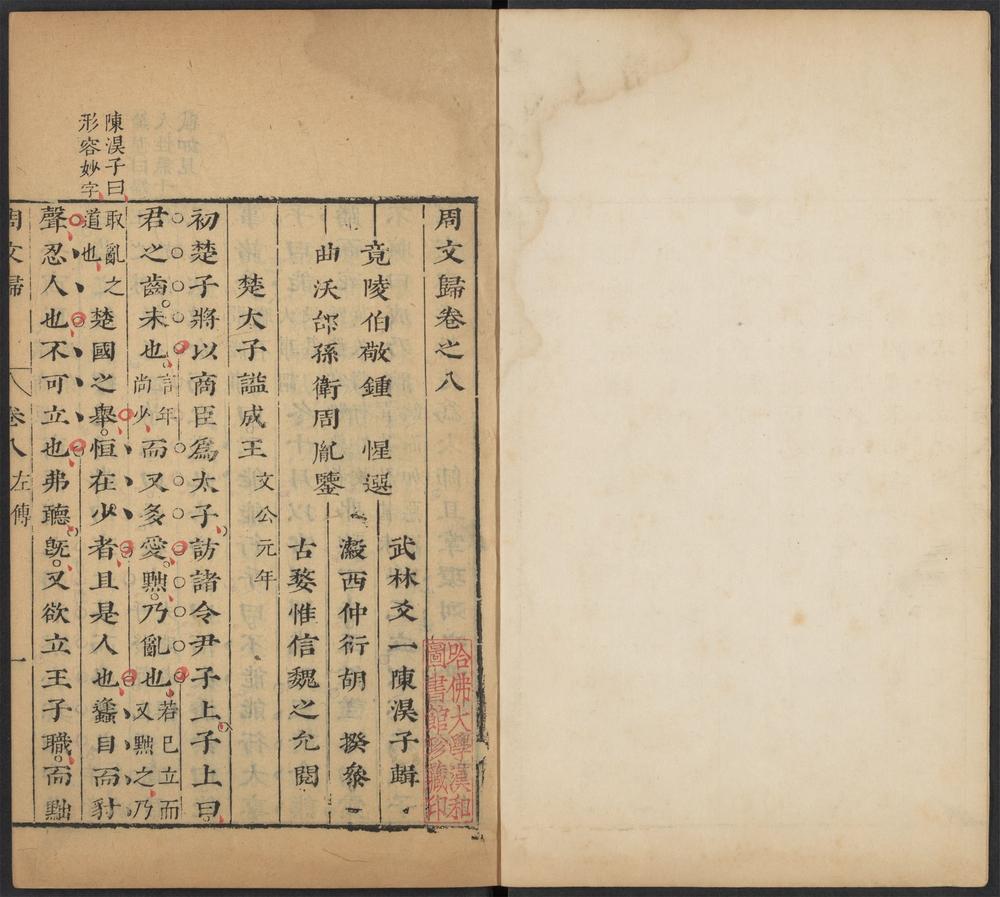 周文歸卷之八
竟陵伯敬鍾　惺選
武林爻一陳淏子輯
曲沃邰孫衛周胤鑒
瀫西仲衍胡揆參
古婺惟信魏之允閱
楚大子謚成王文公元年
初楚子將以商臣爲太子訪諸令尹子上子上曰
君之齒未也言年尚少而又多愛黜乃亂也若已立而又黜之乃
取亂之道也楚國之舉恒在少者且是人也蠭目而豺
聲忍人也不可立也弗聽旣又欲立王子職而黜
陳淏子曰
形容妙字
周文歸
卷八
左傳
一
哈佛大學漢和
圖書館珍藏印